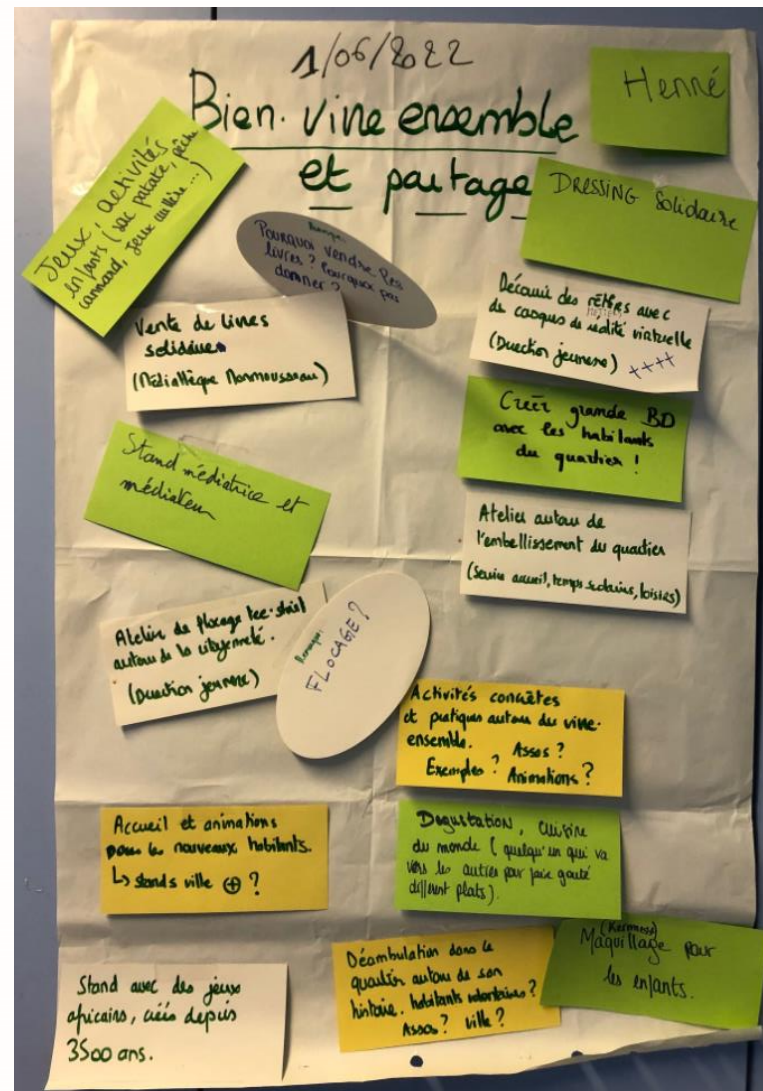 1/06/2022
Bien-vivre ensemble
et partage
Henné
Jeux, activités
enfants (sac patate, pêche
cannard, jeux cuillère...)
DRESSING Solidaire
Remarque:
Pourquoi vendre les
livres ? Pourquoi pas
donner ?
Vente de livres
solidaire
(Médiathèque Monmousseau)
Découvrir des métiers avec
MÉTIERS
de casques de réalité virtuelle
(Direction jeunesse) ++++
Créer grande BD
avec les habitants
du quartier !
Stand médiatrice et
médiateur
Atelier autour de
l'embellissement du quartier
(Service accueil, temps scolaires, loisirs)
Atelier de flocage tee-shirt
autour de la citoyenneté.
(Direction jeunesse)
Remarque:
FLOCAGE ?
Activités concrètes
et pratiques autour du vivre-
ensemble. Assos ?
Exemples ? Animations ?
Accueil et animations
pour les nouveaux habitants.
↳ stands ville ⊕ ?
Degustation, cuisine
du monde ( quelqu'un qui va
vers les autres pour faire gouté
différent plats).
Stand avec des jeux
africains, créés depuis
3500 ans.
Déambulation dans le
quartier autour de son
histoire. habitants volontaires ?
Assos ? Ville ?
(Kermess)
Maquillage pour
les enfants.